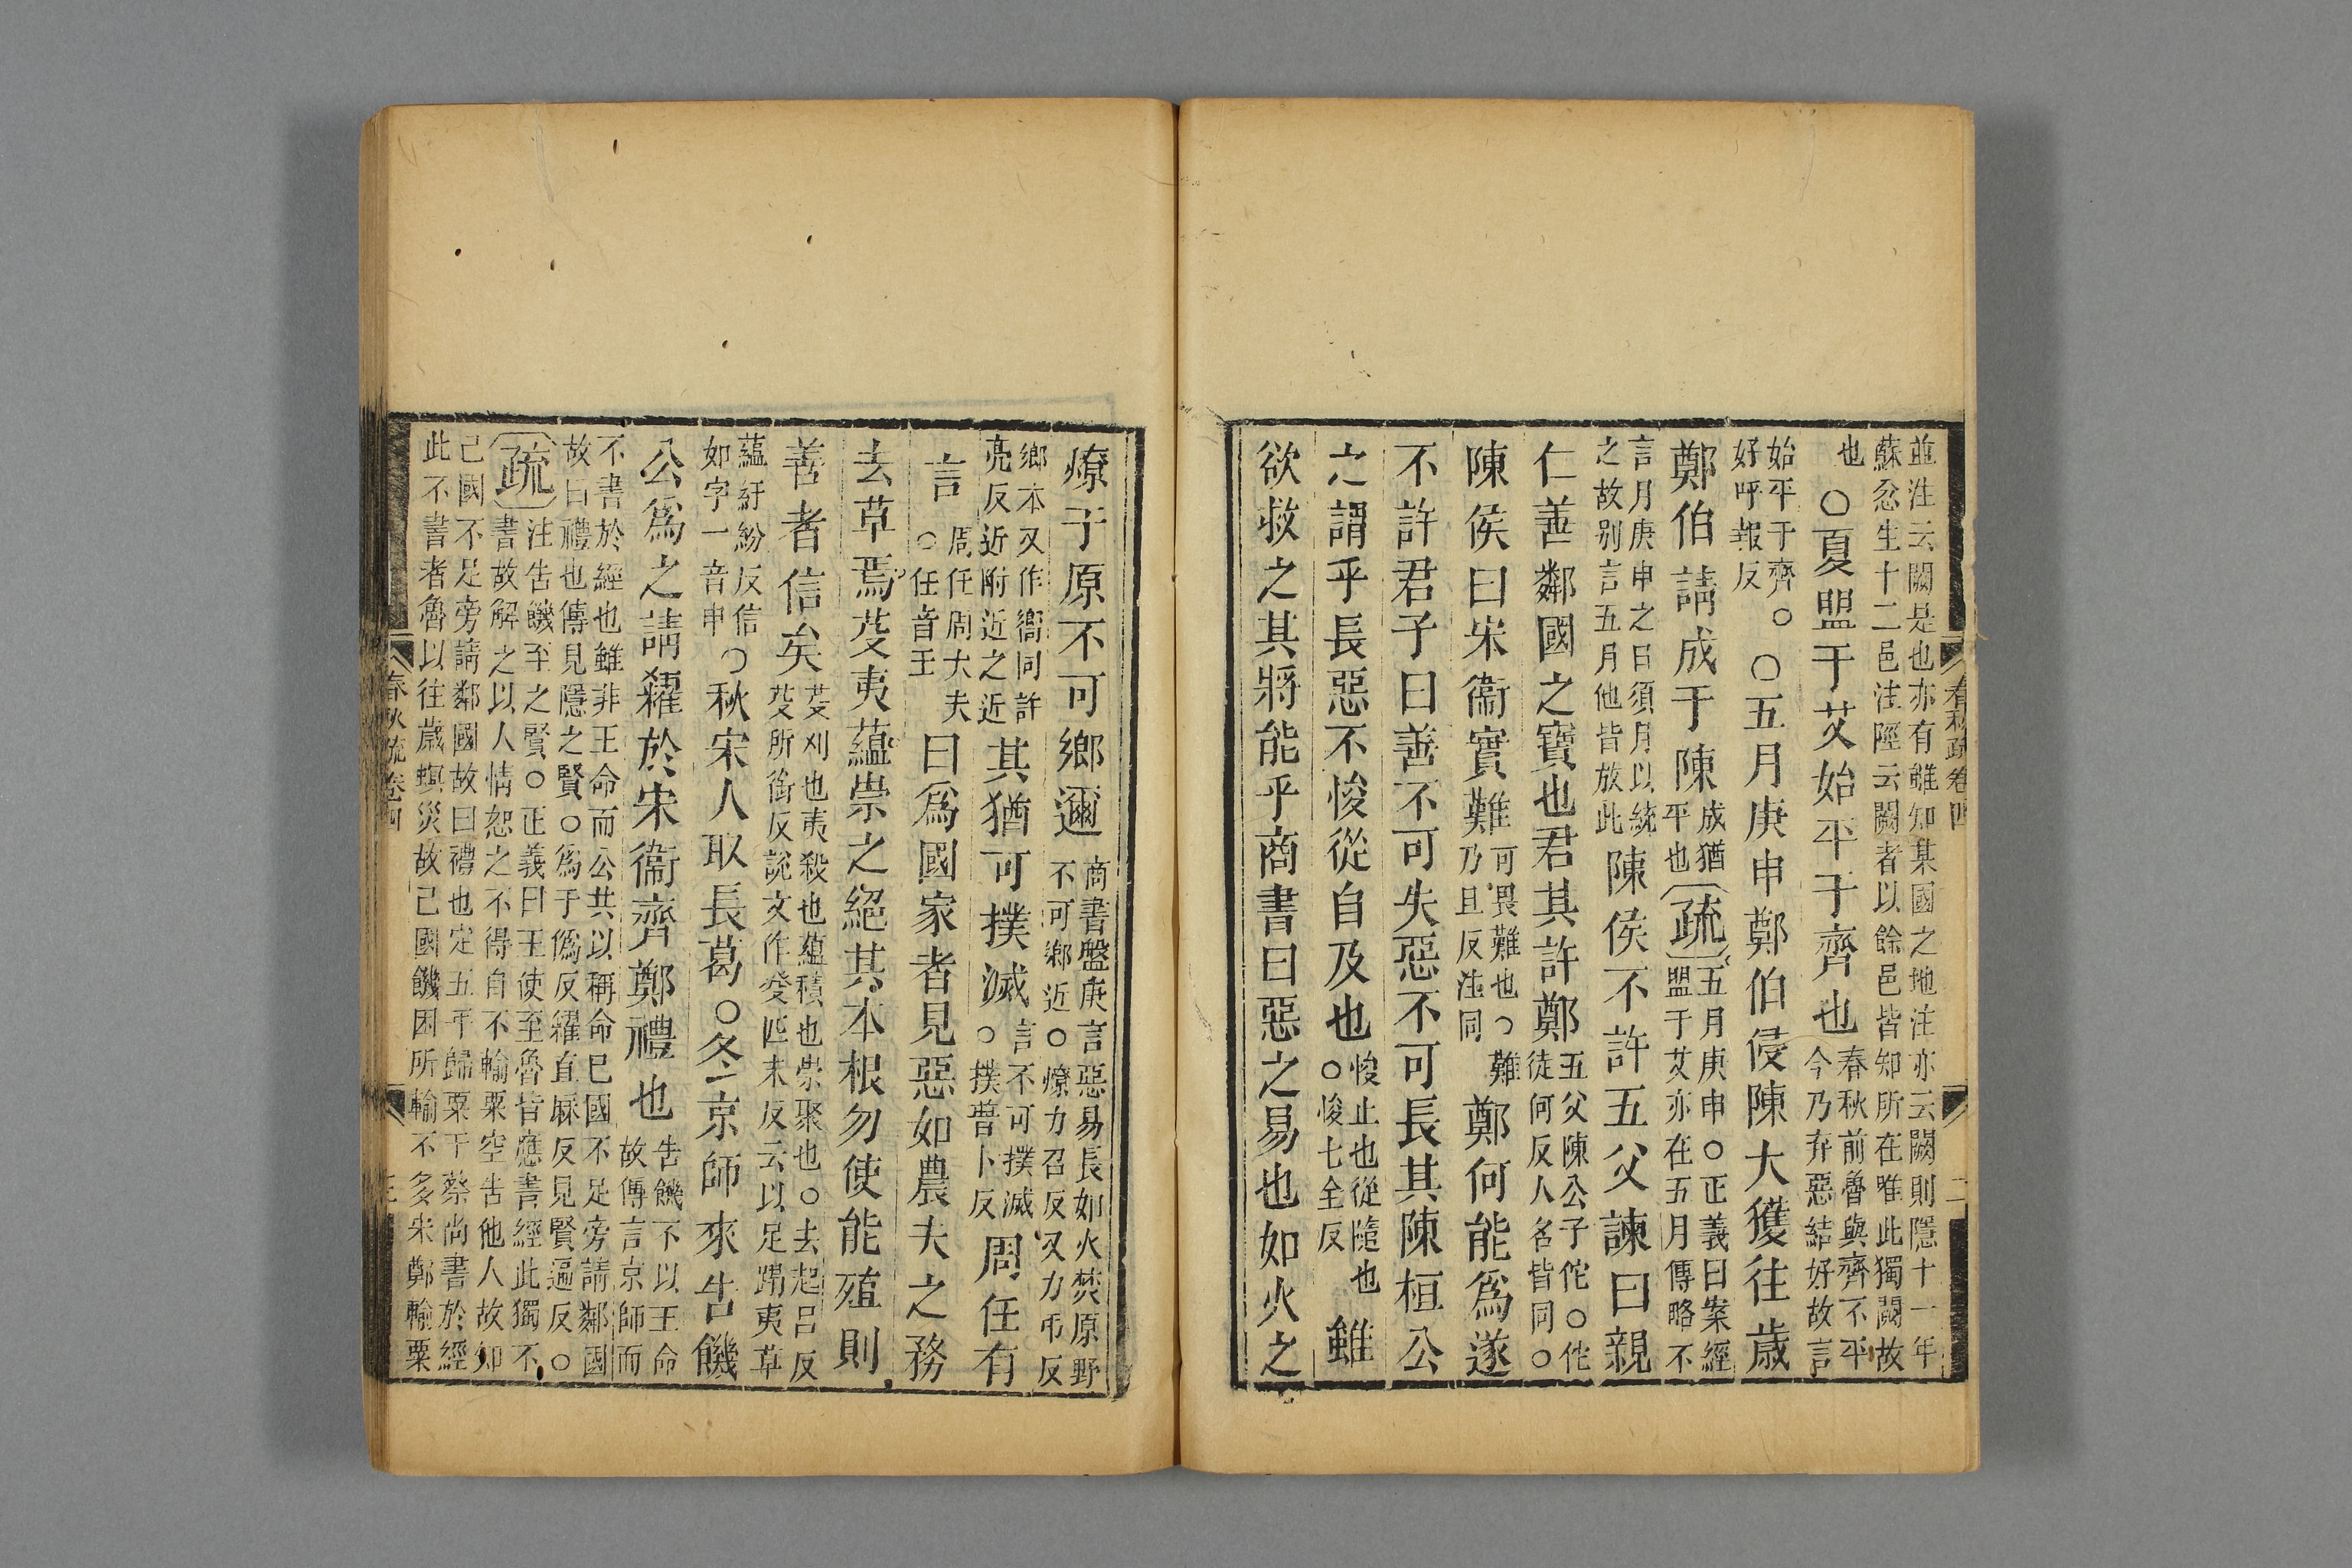 並注云闕是也亦有雖知某國之地注亦云闕則隱十一年
蘇忿生十二邑注陘云闕者以餘邑皆知所在唯此獨闕故
也
○夏盟于艾始平于齊也
春秋前魯與齊不平
今乃弃惡結好故言
始平于齊○
好呼報反
○五月庚申鄭伯侵陳大獲往歲
鄭伯請成于陳
成猶
平也
疏
五月庚申○正義曰案經
盟于艾亦在五月傳略不
言月庚申之日須月以統
之故别言五月他皆放此
陳侯不許五父諫曰親
仁善鄰國之寶也君其許鄭
五父陳公子佗○佗
徒何反人名皆同○
陳侯曰宋衞實難
可畏難也○難
乃旦反注同
鄭何能爲遂
不許君子曰善不可失惡不可長其陳桓公
之謂乎長惡不悛從自及也
悛止也從隨也
○悛七全反
雖
欲救之其將能乎商書曰惡之易也如火之
春秋疏卷四
二
燎于原不可鄉邇
商書盤庚言惡易長如火焚原野
不可鄉近○燎力召反又力弔反
鄉本又作嚮同許
亮反近附近之近
其猶可撲滅
言不可撲滅
○撲普卜反
周任有
言
周任周大夫
○任音壬
曰爲國家者見惡如農夫之務
去草焉芟夷蘊崇之絕其本根勿使能殖則
善者信矣
芟刈也夷殺也蘊積也崇聚也○去起呂反
芟所銜反說文作癹匹末反云以足蹋夷草
蘊紆紛反信
如字一音申
○秋宋人取長葛○冬京師來告饑
公爲之請糴於宋衞齊鄭禮也
告饑不以王命
故傳言京師而
不書於經也雖非王命而公共以稱命已國不足旁請鄰國
故曰禮也傳見隱之賢○爲于僞反糴直厤反見賢遍反○
疏
注告饑至之賢○正義曰王使至魯皆應書經此獨不
書故解之以人情恕之不得自不輸粟空告他人故知
己國不足旁請鄰國故曰禮也定五年歸粟于蔡尚書於經
此不書者魯以往歲螟災故己國饑困所輸不多宋鄭輸粟
春秋疏卷四
三